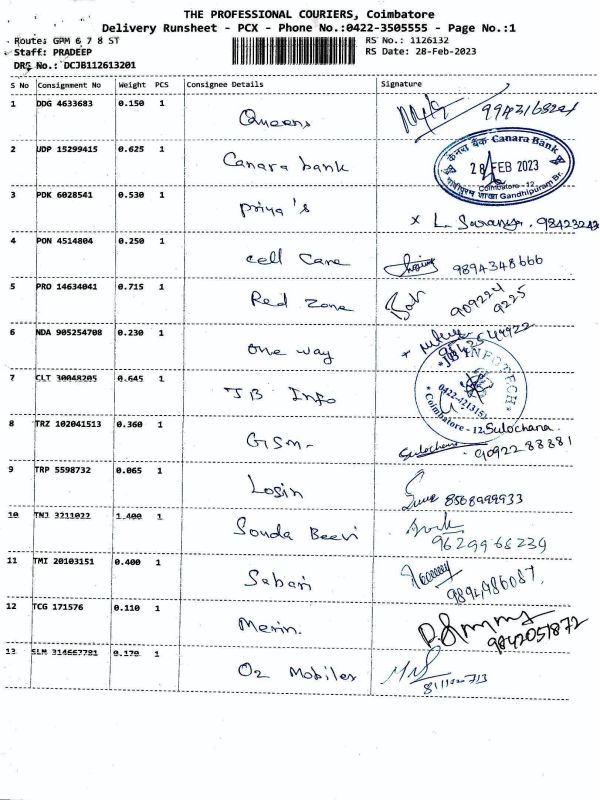 THE PROFESSIONAL COURIERS, Coimbatore
Delivery Runsheet - PCX - Phone No.:0422-3505555 - Page No.:1
Route: GPM 6 7 8 ST
RS No.: 1126132
Staff: PRADEEP
RS Date: 28-Feb-2023
DRS No.: DCJB112613201
S No Consignment No Weight PCS Consignee Details Signature
1 DDG 4633683 0.150 1 Queens
2 UDP 15299415 0.625 1 Canara bank
केनरा बैंक Canara Bank
28 FEB 2023
Coimbatore - 12
शाखा Gandhipuram Br.
3 PDK 6028541 0.530 1 Priya's
x L. Saranya. 98423242
4 PON 4514804 0.250 1 cell Care 9894348666
5 PRO 14634041 0.715 1 Red Zone 909224
9225
6 NDA 905254708 0.230 1 one way
7 CLT 30048205 0.645 1 JB Info
JB INFOTECH
Coimbatore - 12
8 TRZ 102041513 0.360 1 GISM- Sulochana.
Sulochana 9092288881
9 TRP 5598732 0.065 1 Losin 8568999933
10 TNJ 3211022 1.400 1 Sonda Beevi
9629966239
11 TMI 20103151 0.400 1 Sabari
9894986087.
12 TCG 171576 0.110 1 Merin.
9842051872
13 SLM 314667781 0.170 1 O2 Mobiles